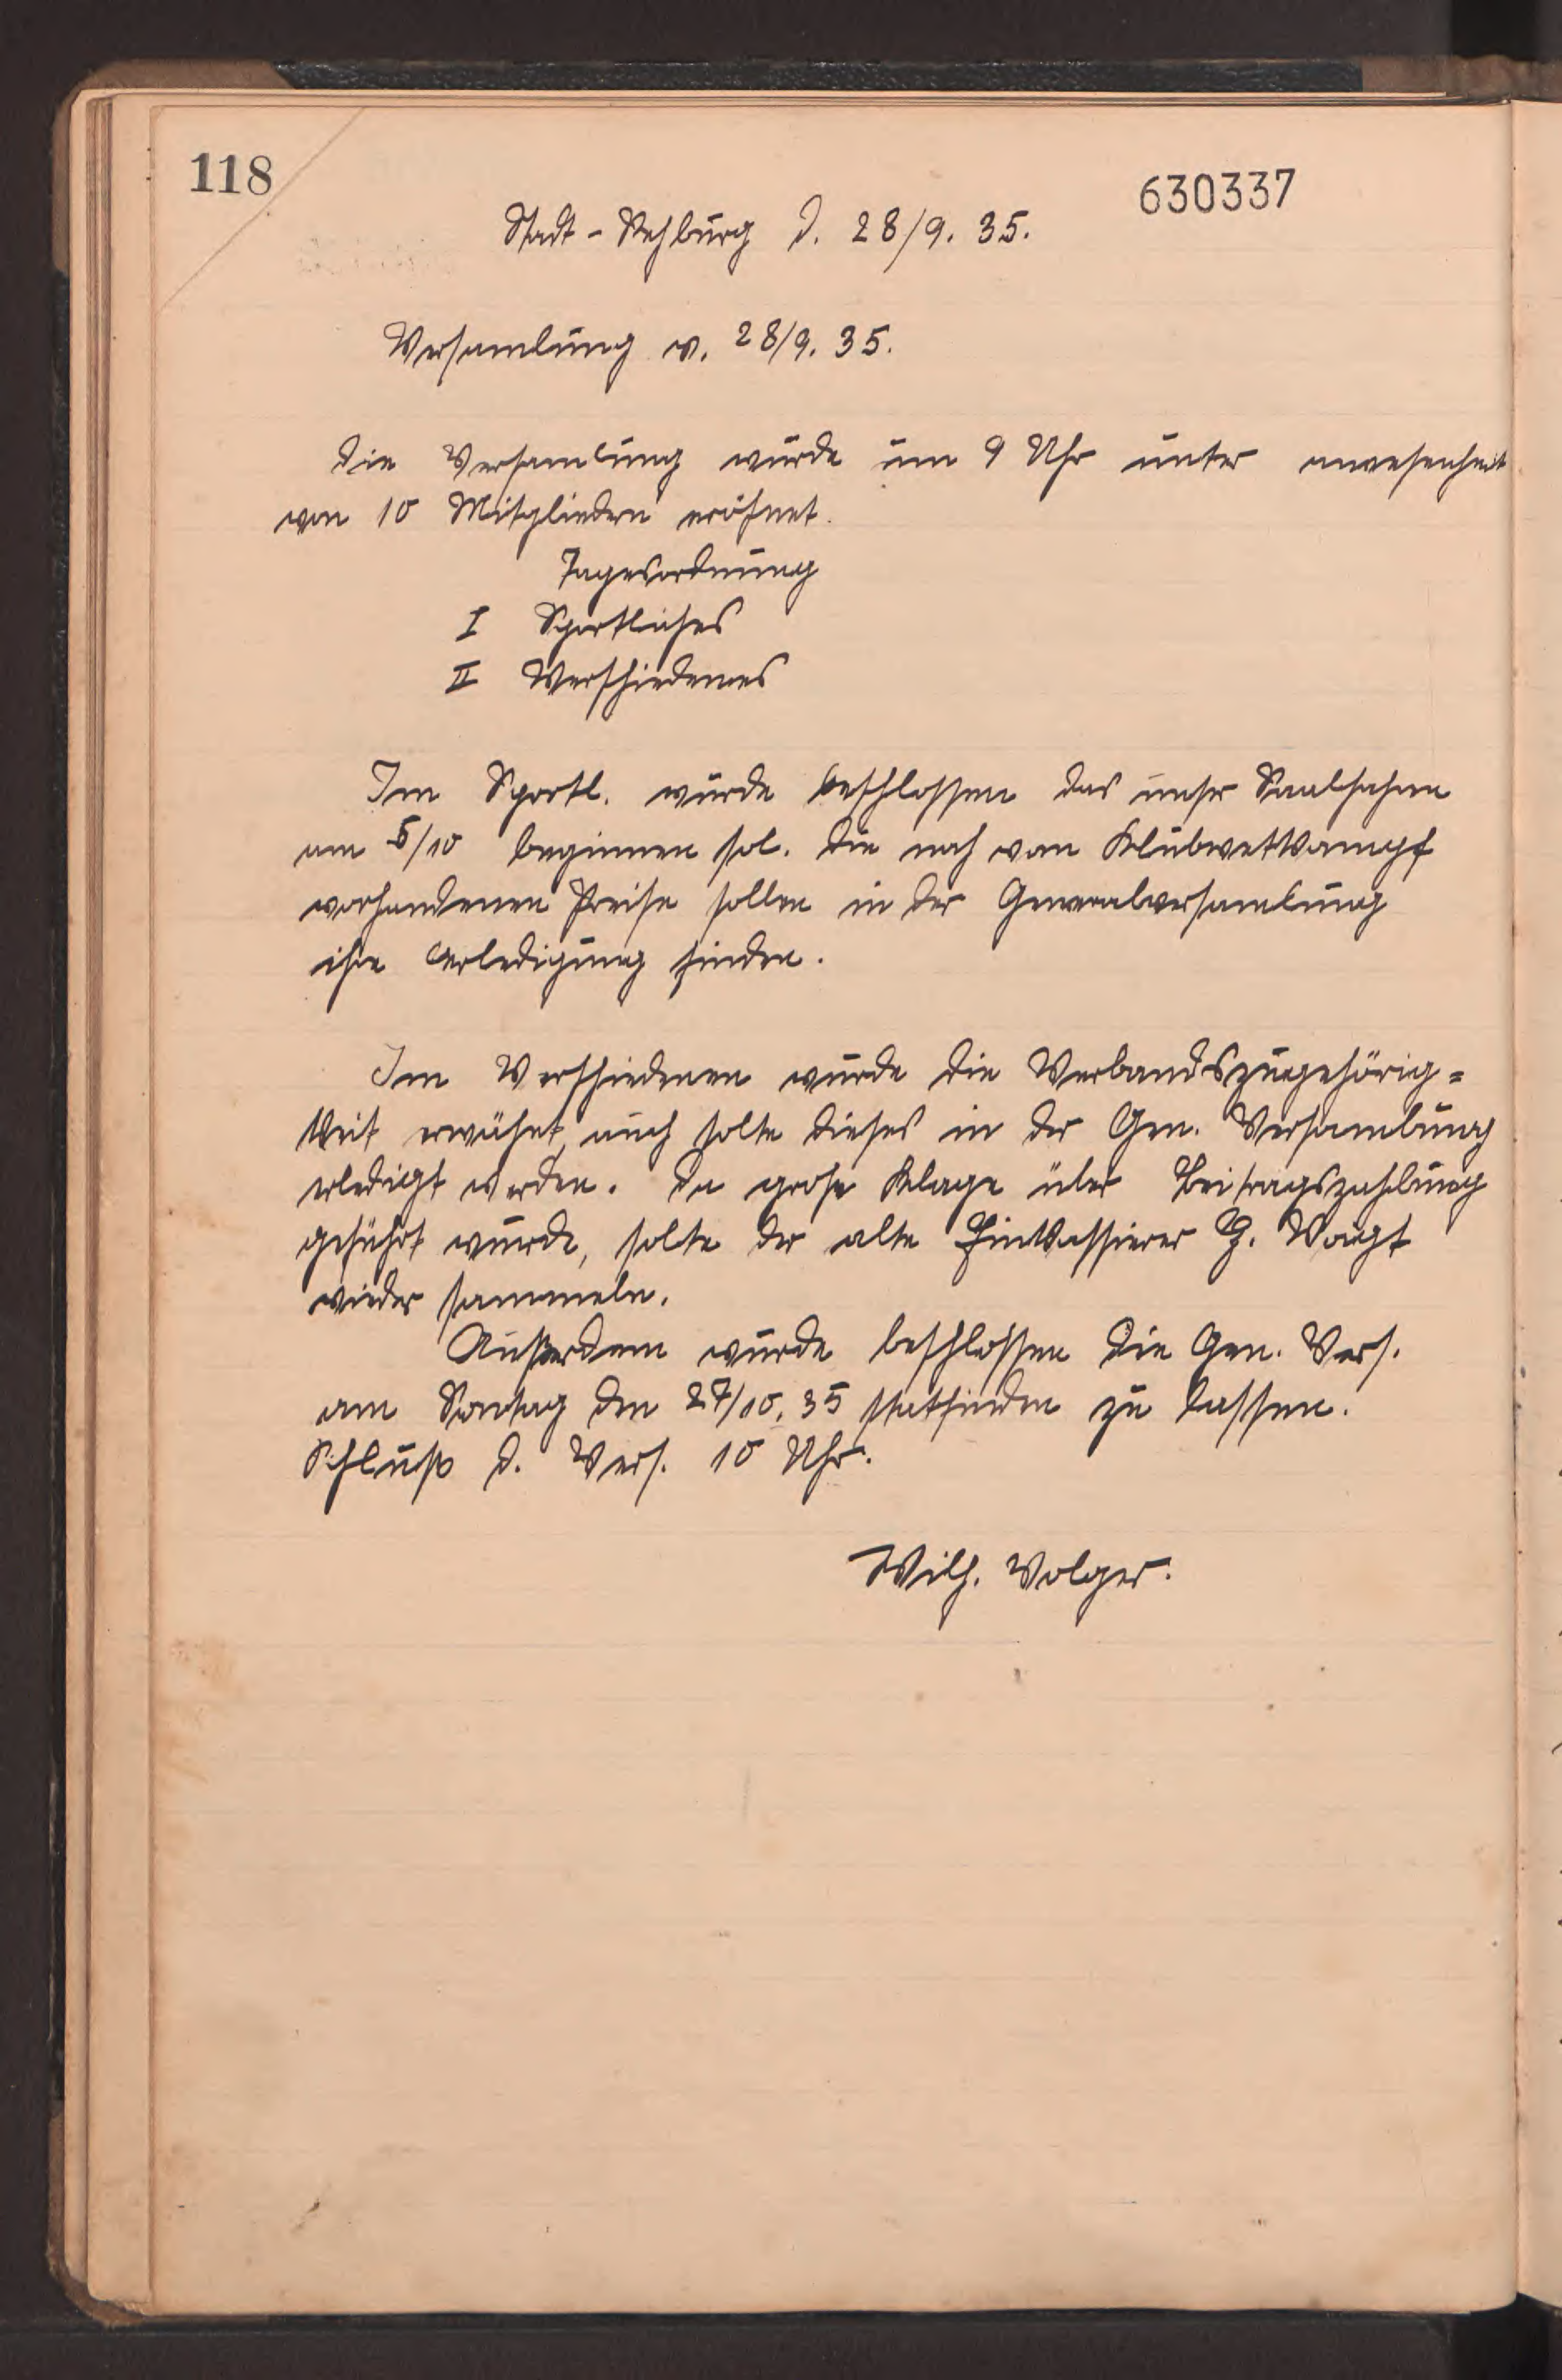 118
630337
Stadt-Rehburg d. 28/9. 35.
Versamlung v. 28/9. 35.
Die Versamlung wurde um 9 Uhr unter anwesenheit
von 10 Mitgliedern eröfnet.
Tagesordnung
I Sportliches
II Verschiedenes
Im Sportl. wurde beschlossen das unser Saalfahren
am 5/10 beginnen sol. Die noch vom Klubwettkampf
vorhandenen Preise sollen in der Generalversamlung
ihre Erledigung finden.
Im Verschiedenen wurde die Verbandszugehörig=
keit erwähnt, auch solte dieses in der Gen. Versamlung
erledigt werden. Da grose Klage über Beitragszahlung
geführt wurde, solte der alte Einkassierer H. Voigt
wieder sammeln.
Außerdem wurde beschlossen die Gen. Vers.
am Sontag den 27/10. 35 statfinden zu lassen.
Schluß d. Vers. 10 Uhr.
Wilh. Volger.